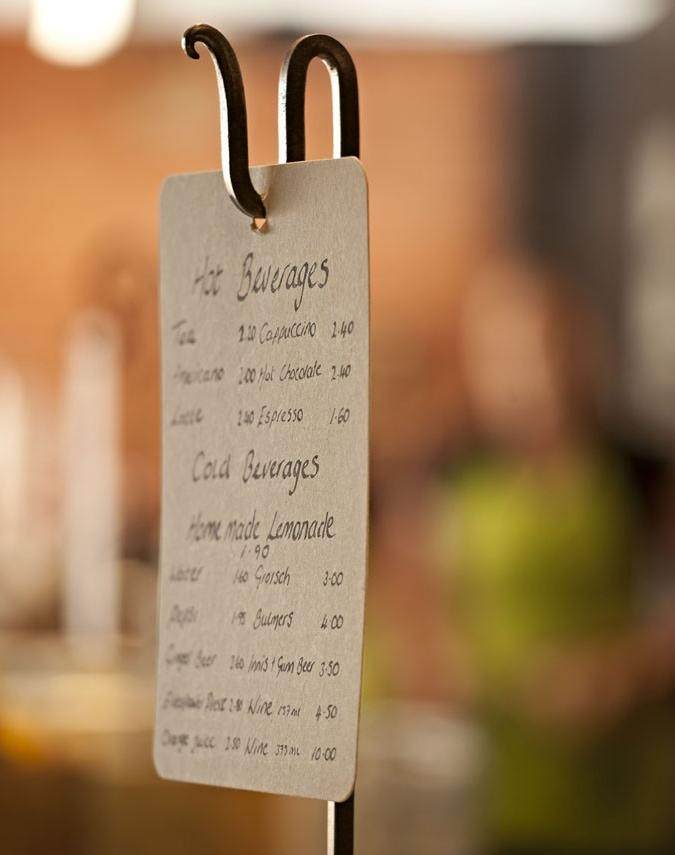 Hot Beverages
Tea 2.20 Cappuccino 2.40
Americano 2.00 Hot Chocolate 2.40
Latte 2.40 Espresso 1.60
Cold Beverages
Homemade Lemonade
1.90
Water 1.60 Grorsch 3.00
Pepsi 1.95 Bulmers 4.00
Ginger Beer 2.60 Innis & Gun Beer 3.50
Wine 4.50
Orange Juice 2.50 Wine 10.00